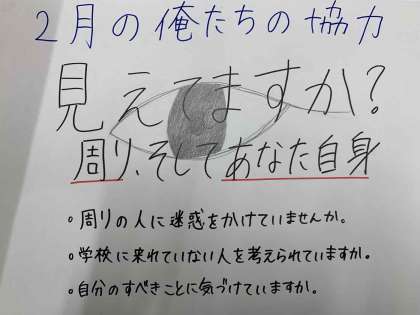 2月の俺たちの協力
見えてますか?
周り、そしてあなた自身
。周りの人に迷惑をかけていませんか。
。学校に来れていない人を考えられていますか。
。自分のすべきことに気づけていますか。